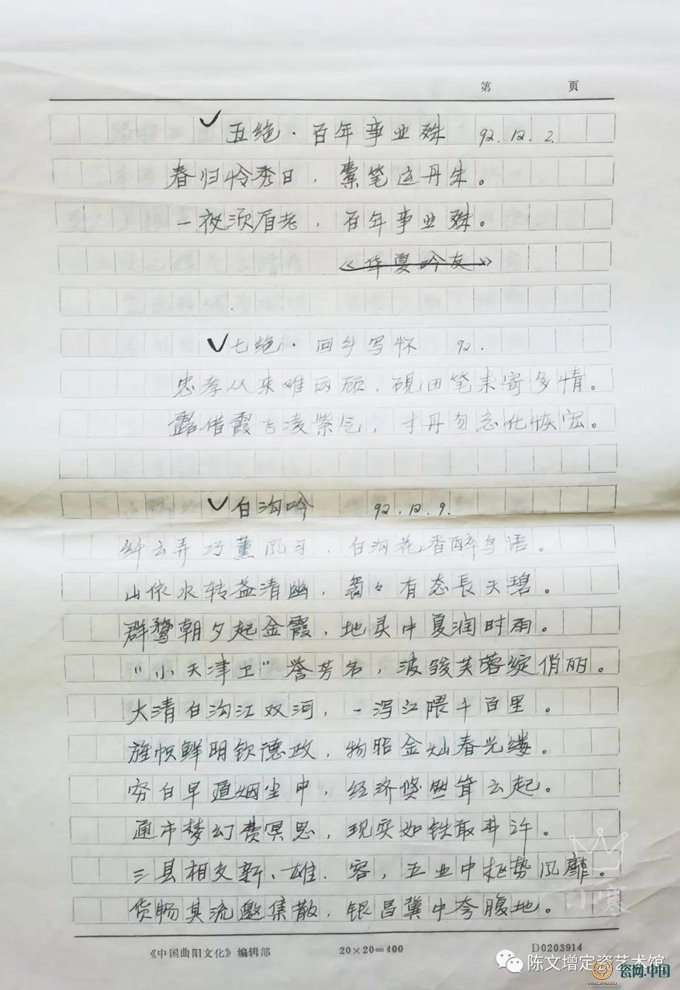 第 页
✓五绝·百年事业殊 92.12.2
春归怜秀日，橐笔运丹朱。
一夜须眉老，百年事业殊。
《华夏吟友》
✓七绝·回乡写怀 92.
忠孝从来难两顾，砚田笔耒寄多情。
露借霞飞凌紫气，寸丹勿忘化恢宏。
✓白沟吟 92.12.9.
纤云弄巧薰风习，白沟花香醉鸟语。
山依水转益清幽，裊々有态長天碧。
群鹜朝夕起金霞，地灵中夏润时雨。
“小天津卫”誉芳名，波皱芙蓉绽俏丽。
大清白沟江双河，一泻江隈千百里。
旌帜鲜明钦德政，物阜金灿春光缕。
穷白早遁烟尘中，经济倏然耸云起。
通市梦幻费冥思，现实如铁敢弄许。
三县相交新、雄、容，五业中枢势风靡。
货畅其流邀集散，银昌冀中夸腹地。
《中国曲阳文化》编辑部 20×20=400 D0203914
陈文增定瓷艺术馆
瓷网.中国